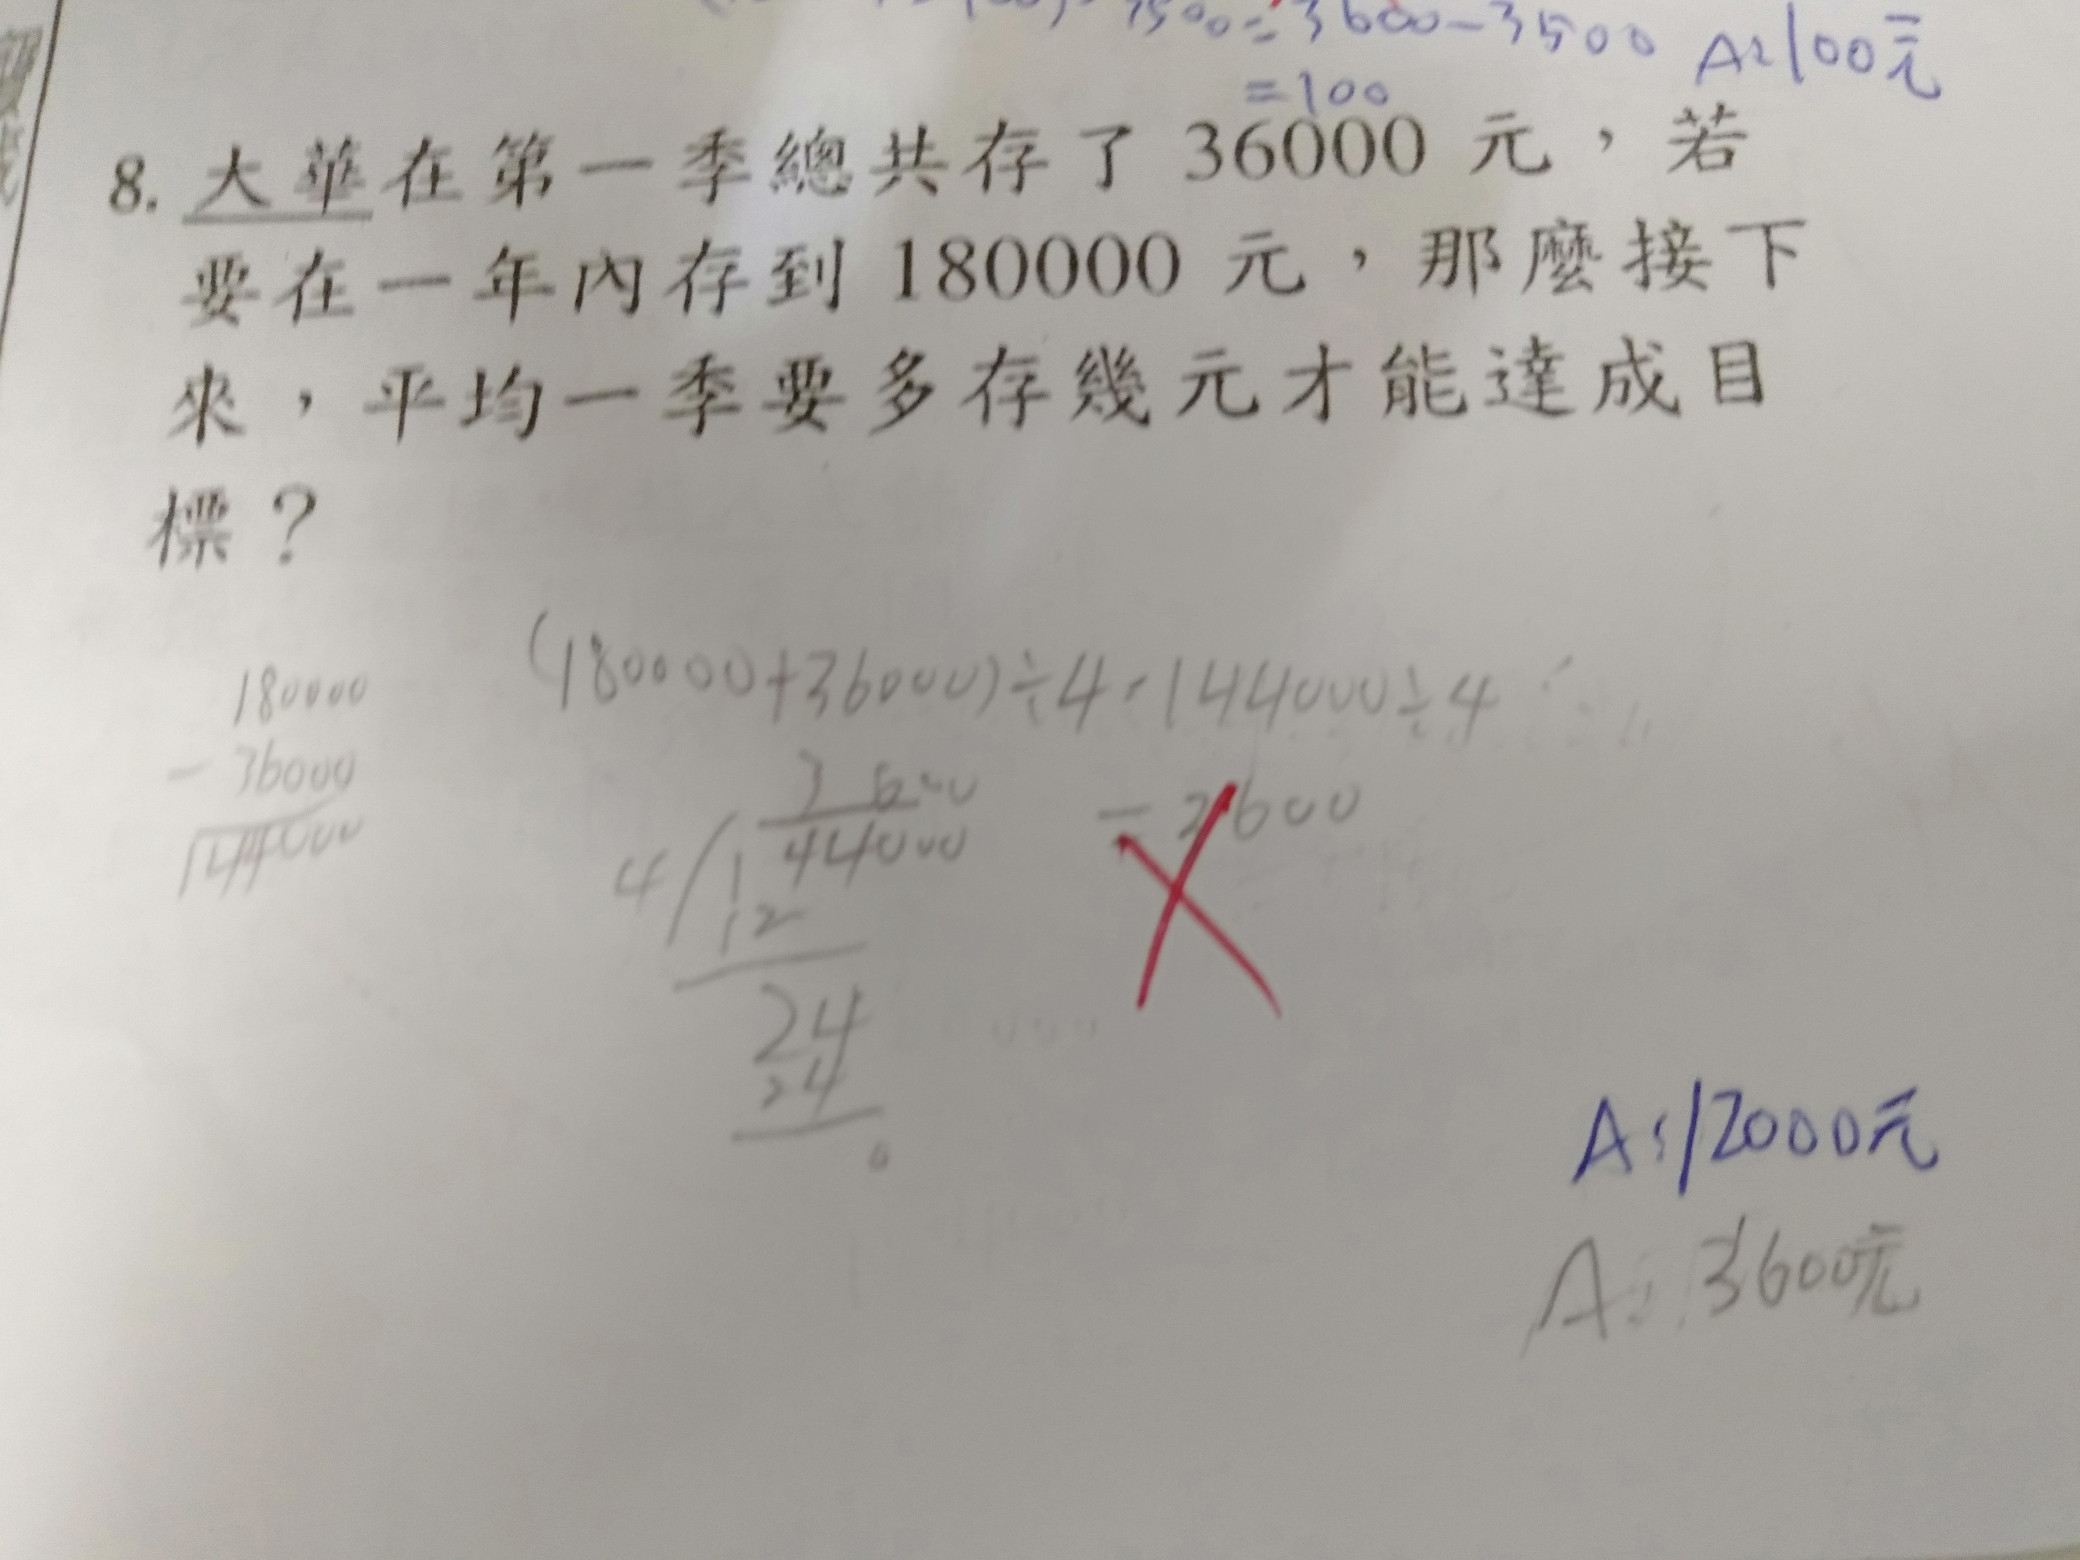 7500=3600-3500 A:100元
=100
8. 大華在第一季總共存了 36000 元，若
要在一年內存到 180000 元，那麼接下
來，平均一季要多存幾元才能達成目
標？
(180000+36000)÷4=144000÷4
=3600
180000
- 36000
144000
3600
4/144000
12
24
24
0
A:12000元
A:3600元